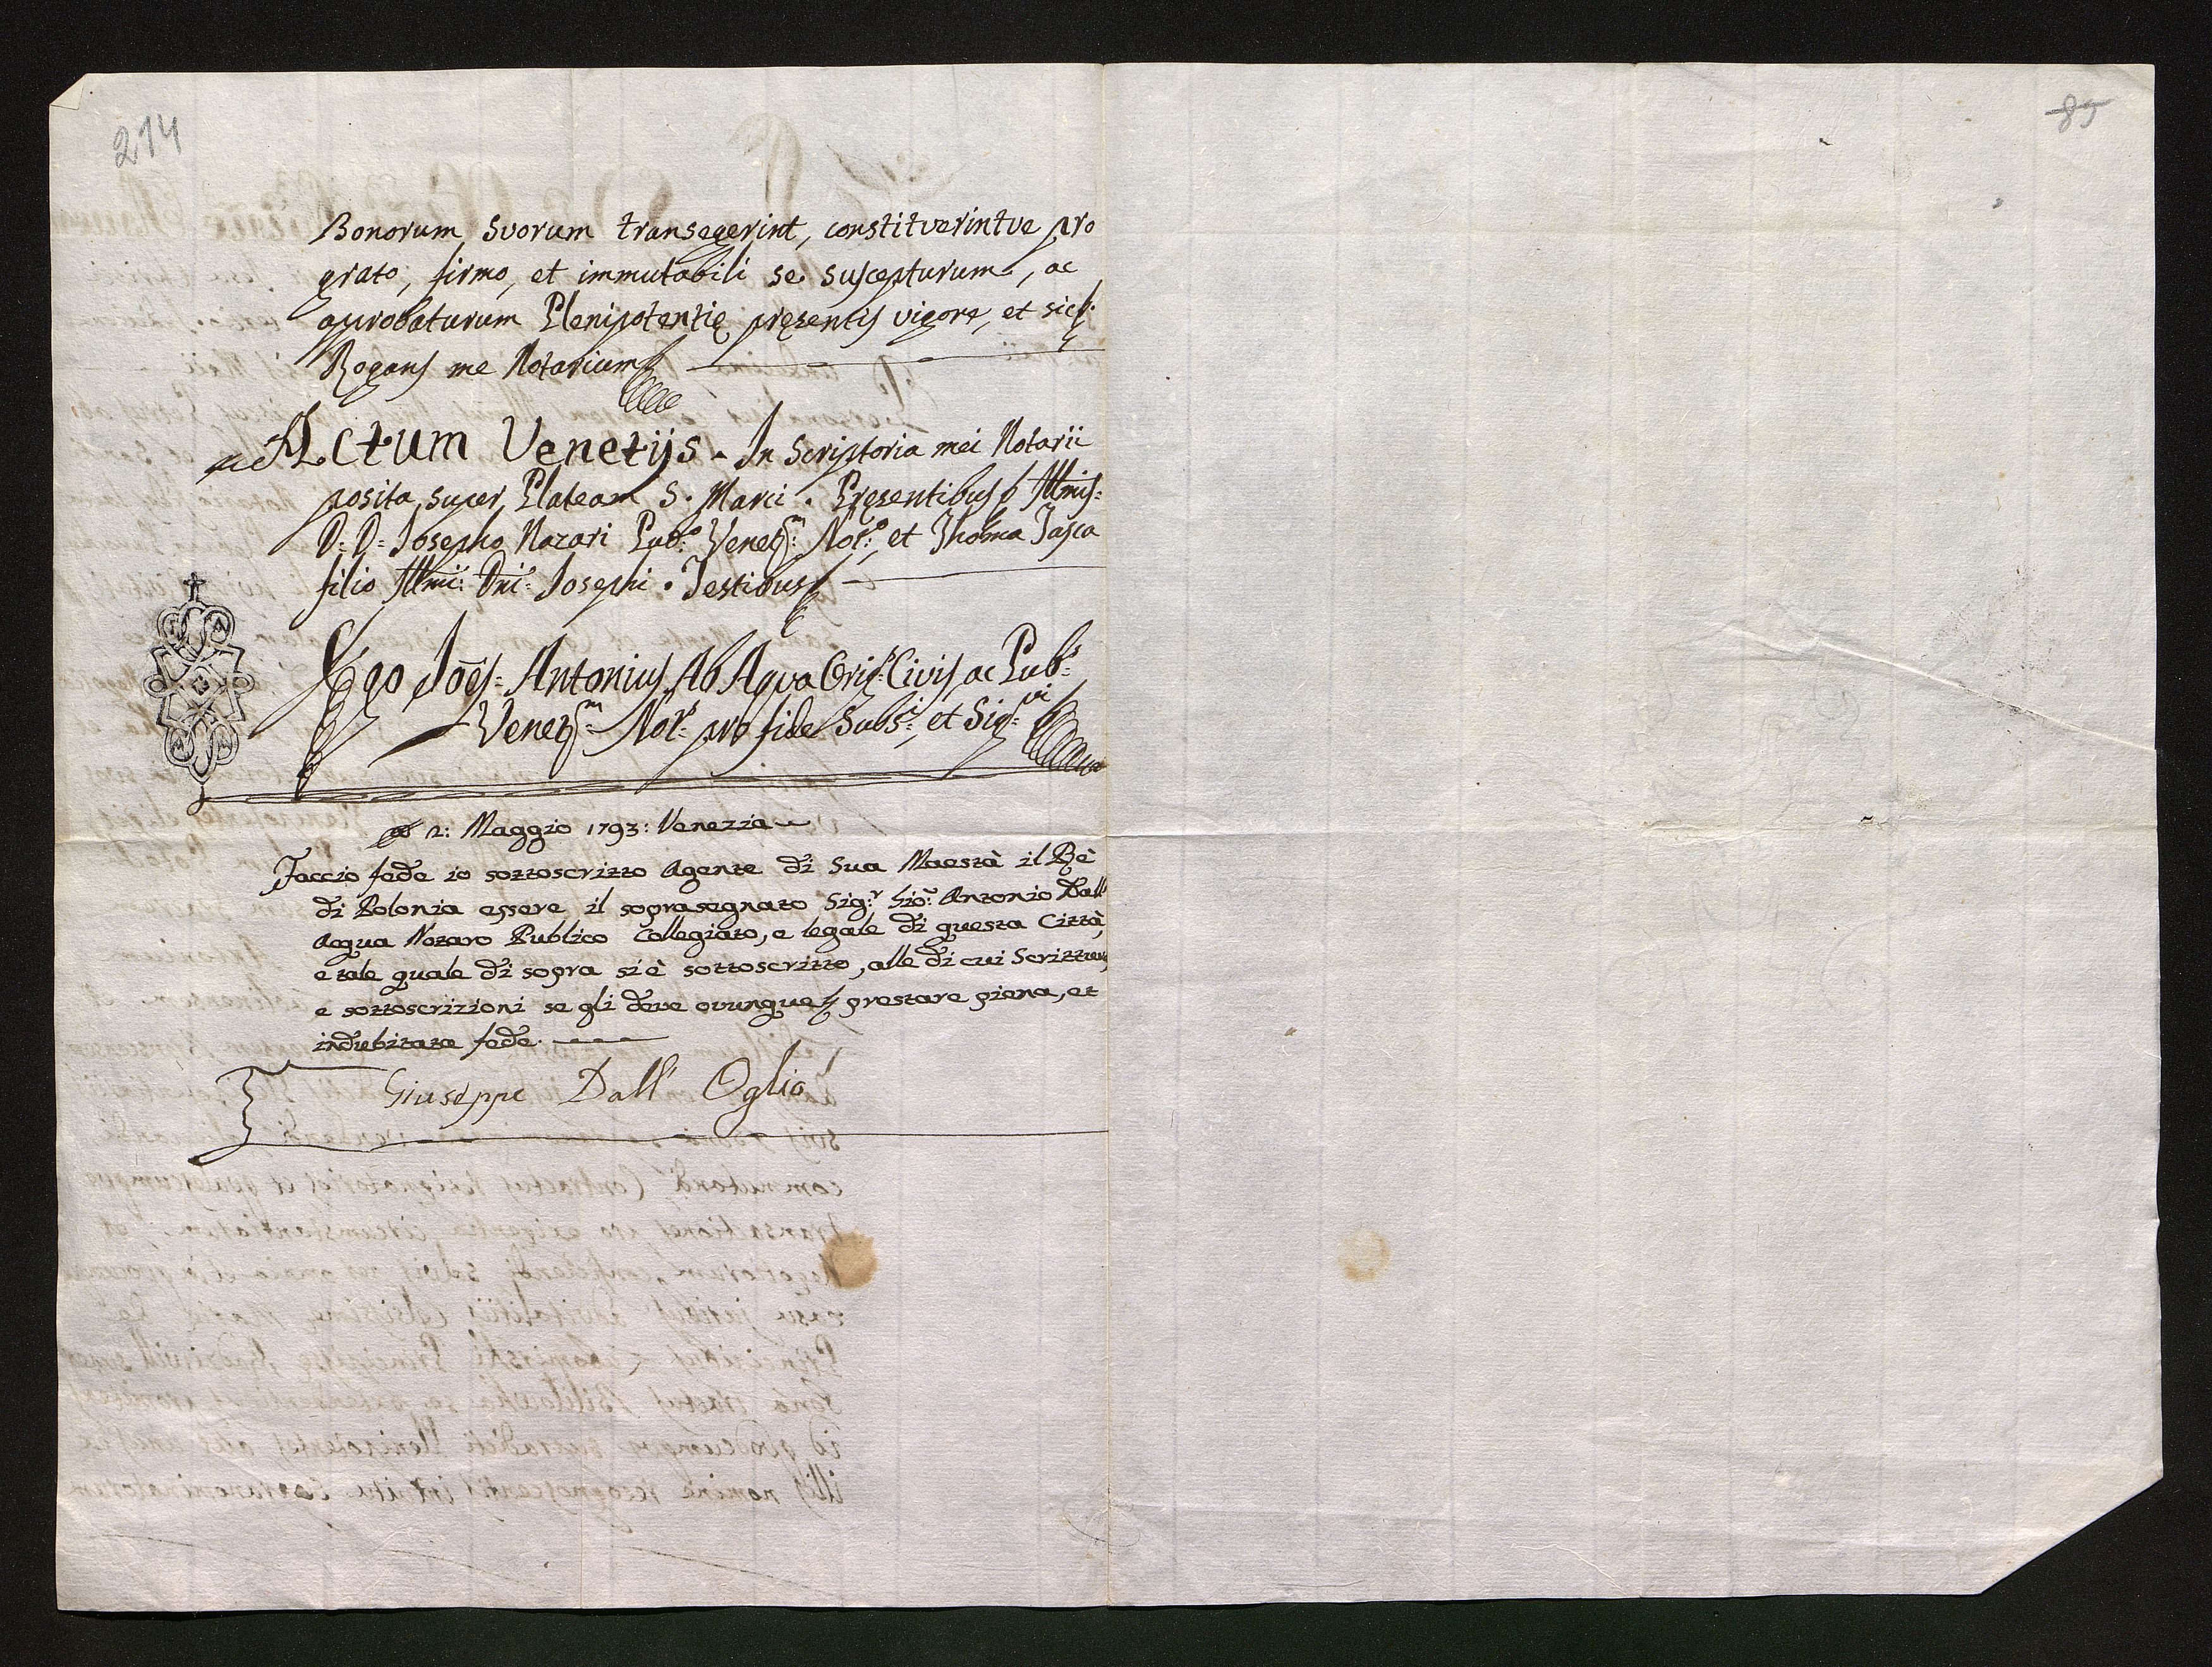 214
85
Bonorum suorum transegerint, constitverintve pro
grato, firmo, et immutabili se suscepturum, ac
aprobaturum Plenipotentię pręsentis vigore, et sic
Rogans me Notarium
Actum Venetijs. In Scriptoria mei Notarii
posita super Plateam S. Marci. Pręsentibus Illmis:
D: D: Josepho Nazari Pub:º Venet:m Not:º, et Thoma Tasca
filio Illmi: Dni: Josephi. Testibus
Ego Joẽs: Antonius Ab Aqua Orig:s Civis ac Pub:s
Venet:m Not:s pro fide Subs:i, et Sig:vi
2: Maggio 1793: Venezia
Faccio fede io sottoscritto Agente di Sua Maestà il Rè
di Polonia essere il soprasegnato Sig:r Gio: Antonio Dall'
Acqua Notaro Publico Collegiato, e legale di questa Città,
e tale quale di sopra si è sottoscritto, alle di cui Scritture,
e sottoscrizioni se gli deve ovunque prestare piena, et
indubitata fede.
Giuseppe Dall' Oglio